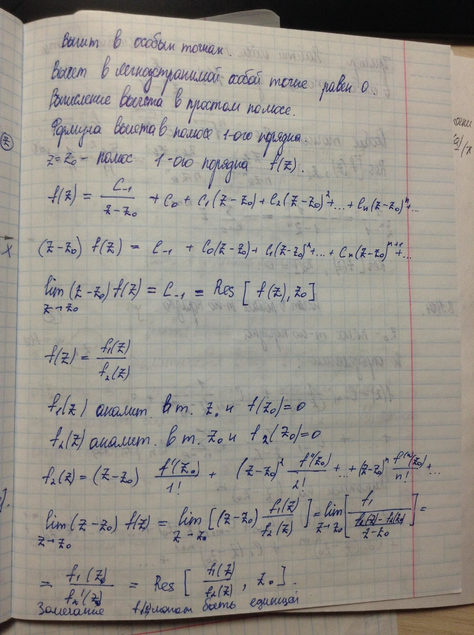 Вычет в особых точках.
Вычет в легкоустранимой особой точке равен 0.
Вычисление вычета в простом полюсе.
Формула вычета в полюсе 1-ого порядка
z=z₀ - полюс 1-ого порядка f(z).
f(z) = C₋₁/(z-z₀) + C₀ + C₁(z-z₀) + C₂(z-z₀)² + ... + Cₙ(z-z₀)ⁿ + ...
(z-z₀) f(z) = C₋₁ + C₀(z-z₀) + C₁(z-z₀)² + ... + Cₙ(z-z₀)ⁿ⁺¹ + ...
lim z→z₀ (z-z₀) f(z) = C₋₁ = Res [f(z), z₀]
f(z) = f₁(z)/f₂(z)
f₁(z) аналит. в т. z₀ и f(z₀)=0
f₂(z) аналит. в т. z₀ и f₂(z₀)=0
f₂(z) = (z-z₀) f'(z₀)/1! + (z-z₀)² f''(z₀)/2! + ... + (z-z₀)ⁿ f⁽ⁿ⁾(z₀)/n! + ...
lim z→z₀ (z-z₀) f(z) = lim z→z₀ [(z-z₀) f₁(z)/f₂(z)] = lim z→z₀ [f₁/((f₂(z)-f₂(z₀))/(z-z₀))] =
= f₁(z₀)/f₂'(z₀) = Res [f₁(z)/f₂(z), z₀].
Замечание быть единицей